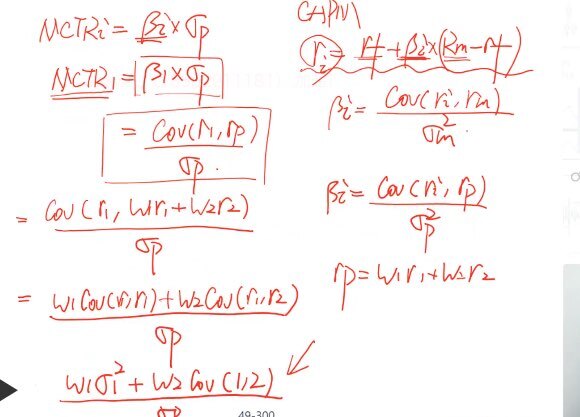 MCTRi = βi × σp
MCTR1 = β1 × σp
= Cov(r1, rp) / σp
= Cov(r1, w1r1 + w2r2) / σp
= w1Cov(r1, r1) + w2Cov(r1, r2) / σp
w1σ1² + w2Cov(1,2) / σp
CAPM
ri = rf + βi × (Rm - rf)
βi = Cov(ri, rm) / σm²
βi = Cov(ri, rp) / σp²
rp = w1r1 + w2r2
49-300